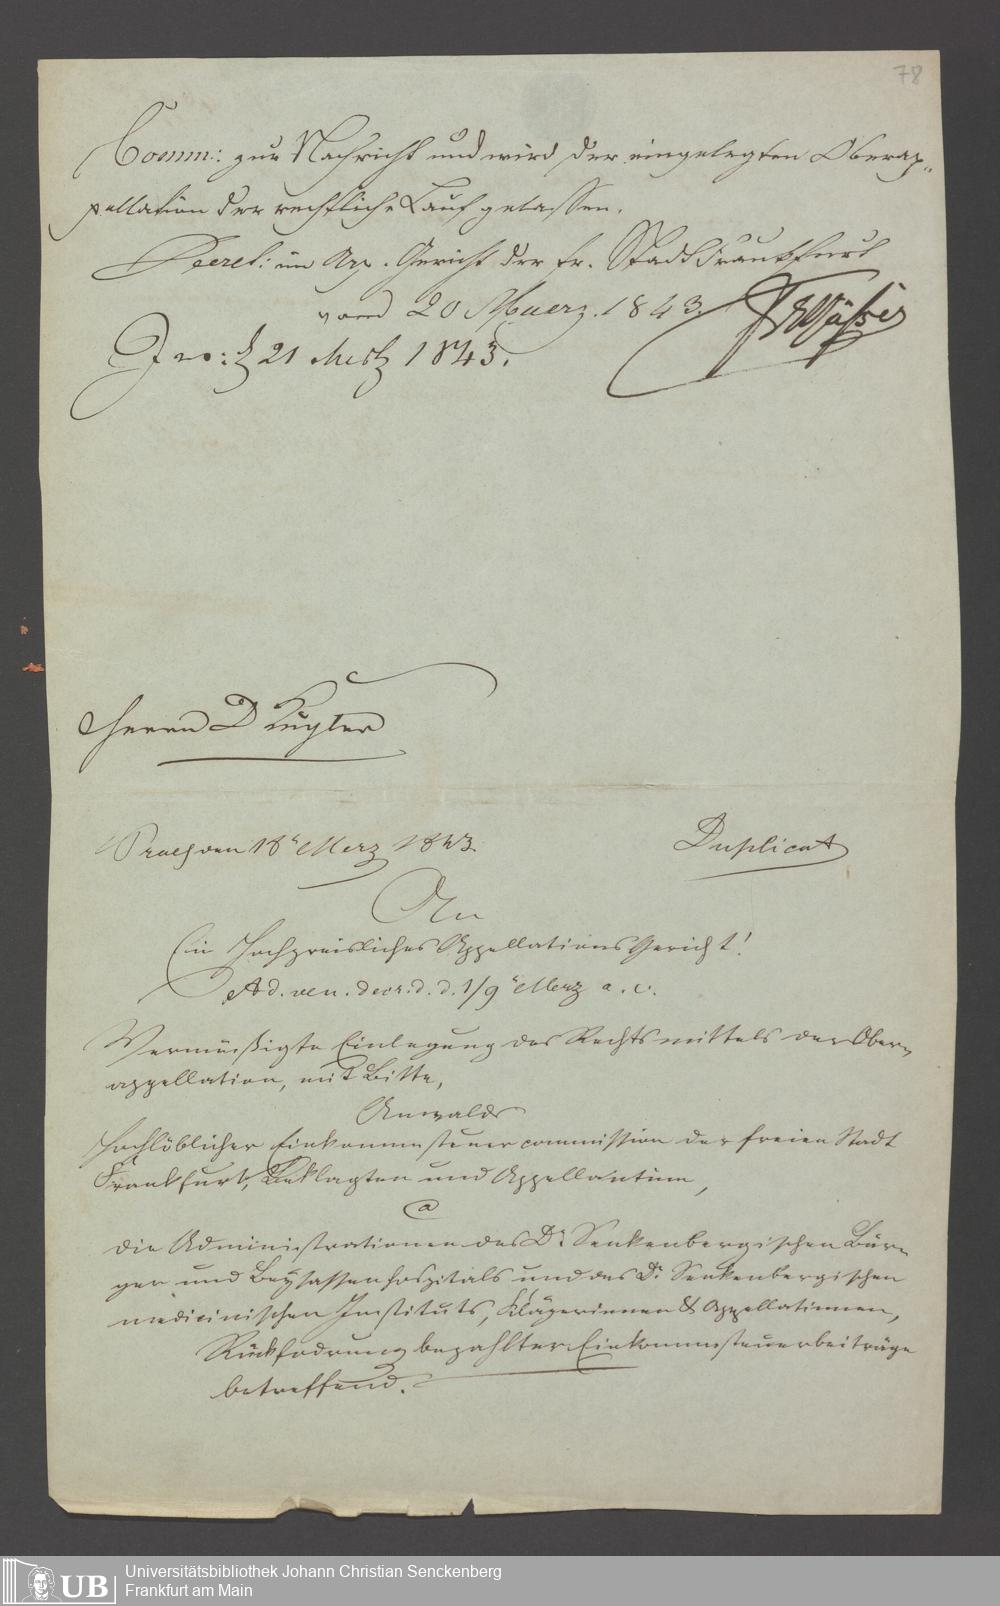 78
Comm: zur Nachricht und wird der eingelegten Oberap„
pellation der rechtliche Lauf gelassen.
Decret: im App. Gericht der fr. Stadt Frankfurt
vom 20 Maerz. 1843.
21 Merz 1843.
Herrn D Kugler
Praes von 18t Merz 1843.
Duplicat
An
Ein Hochpreisliches Appellations Gericht!
Ad. ven. decr. d. d. 1/9t Merz a. c.
Vermüßigte Einlegung des Rechtsmittels der Ober-
appellation, mit Bitte,
Anwalds
Hochlöblicher Einkommensteuercommission der freien Stadt
Frankfurt, Beklagten und Appellantin,
a
die Administrationen des Dr. Senkenbergischen Bür-
ger und Beysassenhospitals und des Dr. Senkenbergischen
medicinischen Instituts, Klägerinnen & Appellatinnen,
Rückfodrung bezahlter Einkommensteuerbeiträge
betreffend.
UB
Universitätsbibliothek Johann Christian Senckenberg
Frankfurt am Main